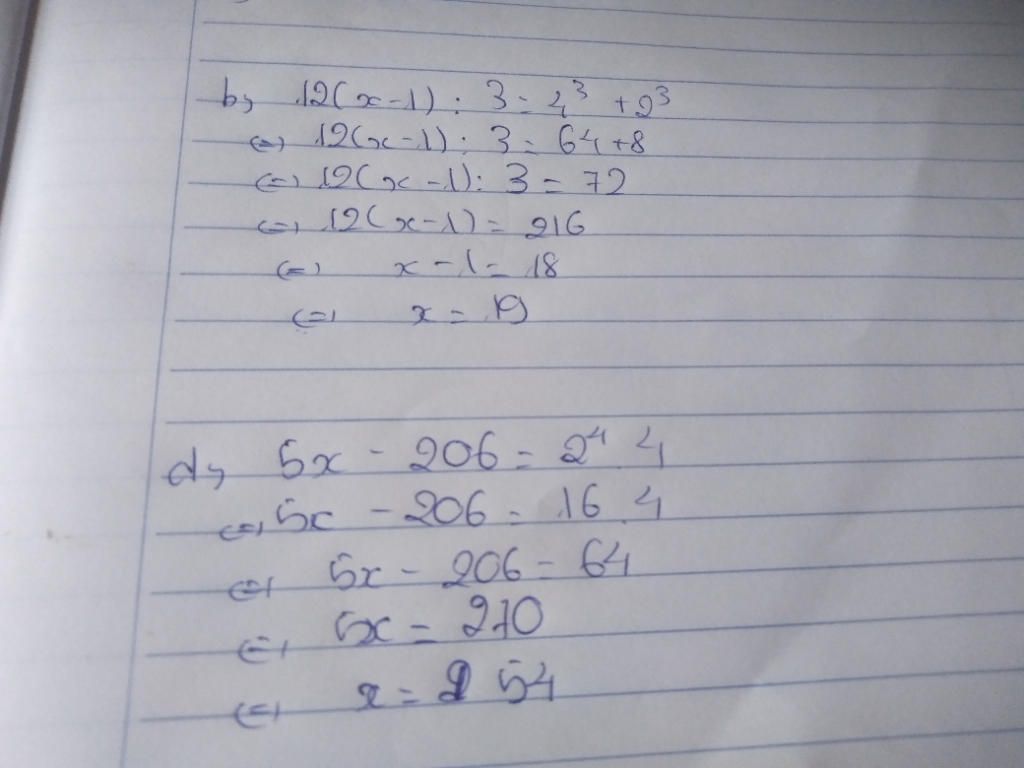 b, 12(x-1) : 3 = 4³ + 2³
<=> 12(x-1) : 3 = 64+8
<=> 12(x-1) : 3 = 72
<=> 12(x-1) = 216
<=> x-1 = 18
<=> x = 19
d, 5x - 206 = 2⁴.4
<=> 5x - 206 = 16.4
<=> 5x - 206 = 64
<=> 5x = 270
<=> x = 54